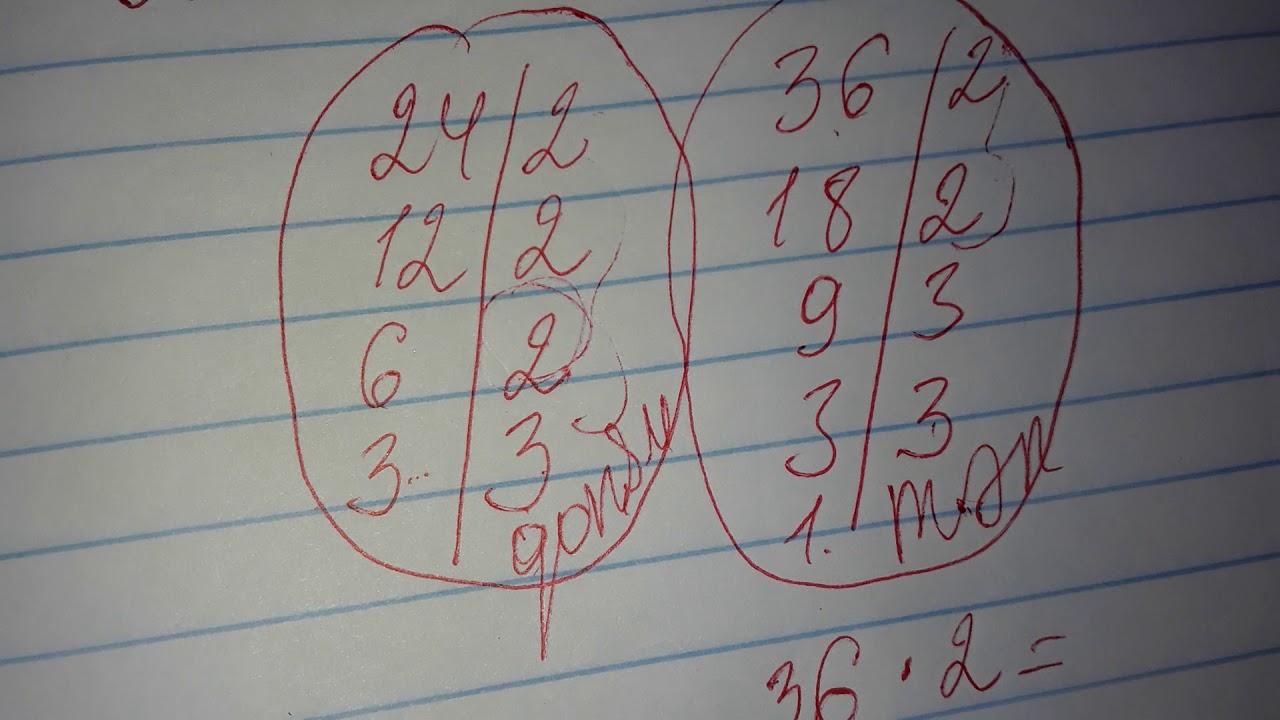 24 | 2
12 | 2
6 | 2
3 | 3
36 | 2
18 | 2
9 | 3
3 | 3
1.
36 · 2 =